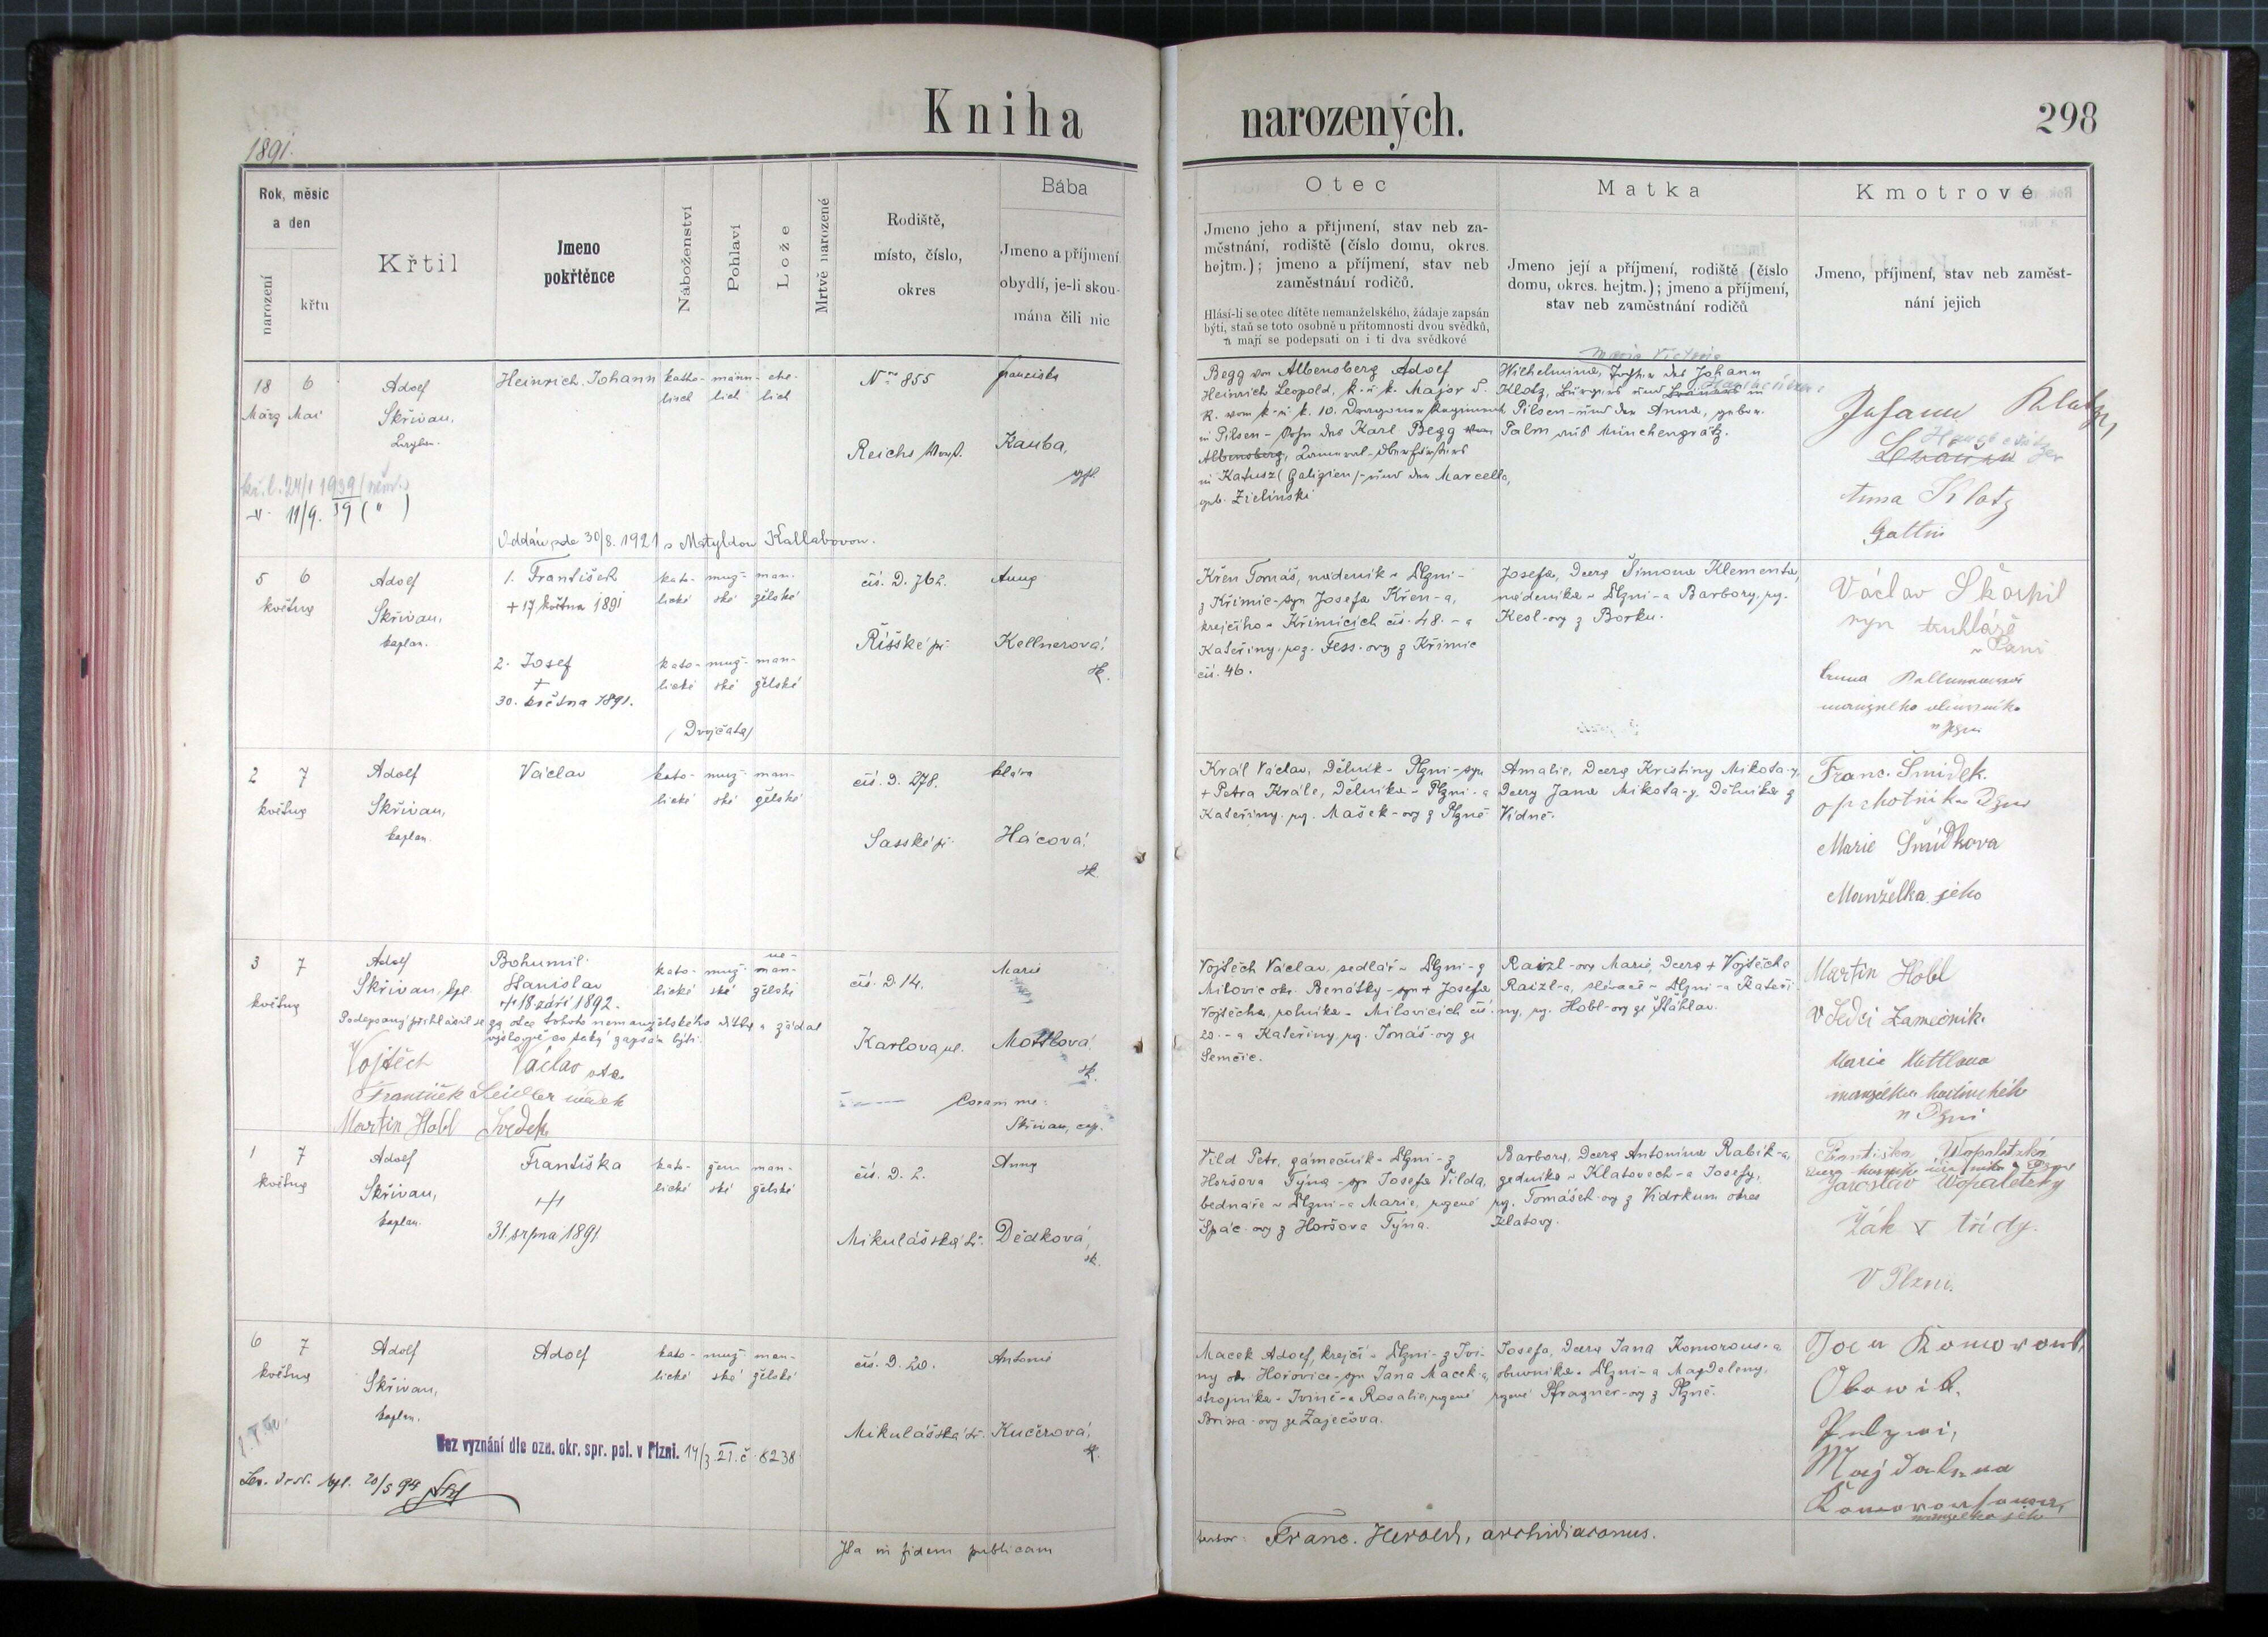 Kniha narozených.
298
1891.
Rok, měsíc
a den
narození
křtu
Křtil
Jmeno
pokřtěnce
Náboženství
Pohlaví
Lože
Mrtvě narozené
Rodiště,
místo, číslo,
okres
Bába
Jmeno a příjmení
obydlí, je-li skou-
mána čili nic
Otec
Jmeno jeho a příjmení, stav neb za-
městnání, rodiště (číslo domu, okres.
hejtm.); jmeno a příjmení, stav neb
zaměstnání rodičů.
Hlásí-li se otec dítěte nemanželského, žádaje zapsán
býti, staň se toto osobně u přítomnosti dvou svědků,
a mají se podepsati on i ti dva svědkové
Matka
Jmeno její a příjmení, rodiště (číslo
domu, okres. hejtm.); jmeno a příjmení,
stav neb zaměstnání rodičů
Kmotrové
Jmeno, příjmení, stav neb zaměst-
nání jejich
18 6
März Mai
Adolf
Skřivan,
Heinrich Johann
katho- männ- ehe-
lisch lich lich
Nro 855
Reichs
Franziska
Kauba,
24/1 1939
11/9. 39 ( " )
30/8. 1921 s Matyldou Kallabovou.
Begg von Albensberg Adolf
Heinrich Leopold, k. u k. Major d.
R. vom k. u k. 10. Dragoner Regiment
in Pilsen - Sohn des Karl Begg von
Albensberg, Kameral-Oberförsters
in Katusz (Galizien) - und der Marcella,
geb. Zielinski
Maria Victoria
Wilhelmina, Tochter des Johann
Klotz, Bürgers und in
Pilsen - und der Anna, gebor.
Palm aus Münchengrätz.
Johann Klotz,
Anna Klotz
Gattin
5 6
května
Adolf
Skřivan,
kaplan.
1. František
+ 17 května 1891
2. Josef
+
30. května 1891.
kato- muž- man-
lické ské želské
kato- muž- man-
lické ské želské
(Dvojčata)
čís. D. 762.
Říšské př.
Anna
Kellnerová,
sk.
Křen Tomáš, nádeník v Plzni -
z Křimic - syn Josefa Křen-a,
krejčího v Křimicích čís. 48. - a
Kateřiny, roz. Fess-ovy z Křimic
čís. 46.
Josefa, dcera Šimona Klementa,
nádeníka v Plzni - a Barbory, roz.
Kesl-ovy z Borku.
Václav Škarpil
syn truhláře
v Plzni
2 7
května
Adolf
Skřivan,
kaplan.
Václav
kato- muž- man-
lické ské želské
čís. D. 278.
Saské př.
Klára
Hácová,
sk.
Král Václav, dělník v Plzni - syn
+ Petra Krále, dělníka v Plzni - a
Kateřiny, roz. Mašek-ovy z Plzně
Amalie, dcera Kristiny Mikota-y,
dcery Jana Mikota-y, dělníka z
Vídně.
Franc. Šmidek.
Marie Šmídkova
Manželka jeho
3 7
května
Adolf
Skřivan, kpl.
Bohumil
Stanislav
+ 18 září 1892.
kato- muž- ne-
man-
lické ské želské
Podepsaný přihlásil se za otce tohoto nemanželského dítka a žádal
výslovně co taký zapsán býti.
Vojtěch Václav otec
František Seidler svědek
Martin Hobl Svědek
čís. D. 14.
Karlova ul.
Marie
Mottlová,
sk.
Coram me:
Skřivan, cap.
Vojtěch Václav, sedlář v Plzni - z
Milovic okr. Benátky - syn + Josefa
Vojtěcha, rolníka v Milovicích čís.
20. - a Kateřiny, roz. Jonáš-ovy ze
Semčic.
Raizl-ova Marie, dcera + Vojtěcha
Raizl-a, slévače v Plzni - a Kateři-
ny, roz. Hobl-ovy ze Stáhlav.
Martin Hobl
Zamečník.
Marie Mottlova
manželka hostinského
v Plzni
1 7
května
Adolf
Skřivan,
kaplan.
Františka
+
31. srpna 1891
kato- žen- man-
lické ské želské
čís. D. 2.
Mikulášská tř.
Anna
Dědková,
sk.
Vild Petr, zámečník v Plzni - z
Horšova Týna - syn Josefa Vilda,
bednáře v Plzni - a Marie, rozené
Špác-ovy z Horšova Týna.
Barbora, dcera Antonína Rabík-a,
zedníka v Klatovech - a Josefy,
roz. Tomášek-ovy z Vidrkum okres
Klatovy.
Františka Wopaletzká
Jaroslav Wopaletzky
Žák V třídy.
V Plzni.
6 7
května
Adolf
Skřivan,
kaplan.
Adolf
kato- muž- man-
lické ské želské
čís. D. 20.
Mikulášská tř.
Antonie
Kučerová,
sk.
Bez vyznání dle ozn. okr. spr. pol. v Plzni. 14/3. 21. č. 6238
20/5 94
Macek Adolf, krejčí v Plzni - z Tvi-
ny okr. Hořovice - syn Jana Macek-a,
strojníka v Tvině - a Rosalie, rozené
Brixa-ovy ze Zaječova.
Josefa, dcera Jana Komorous-a
obuvníka v Plzni - a Magdaleny,
rozené Pfragner-ovy z Plzně.
Jan Komorous,
Obuvík,
v Plzni,
Majdalena
Komorousova,
manželka jeho
Ita in fidem publicam
testor: Franc. Herold, archidiaconus.